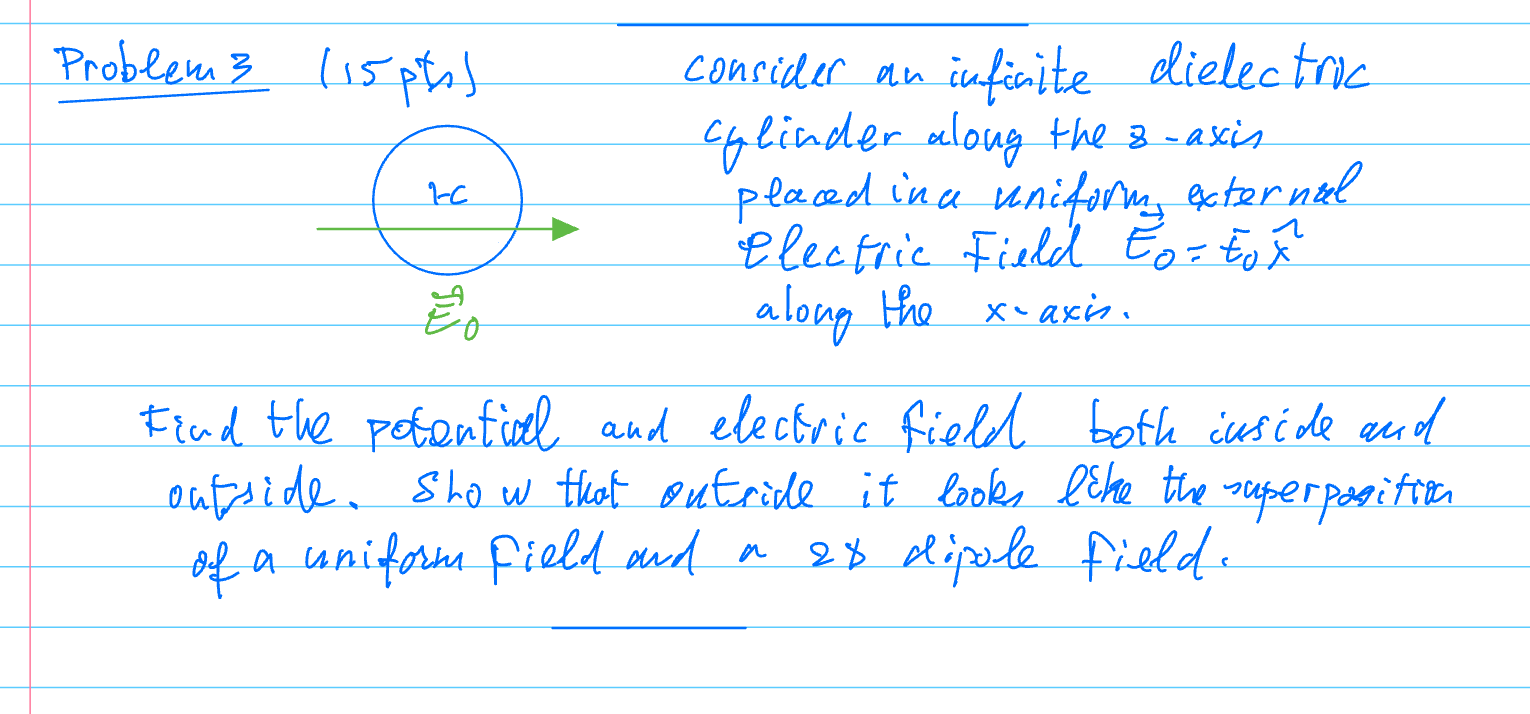 Problem 3 (15 pts) consider an infinite dielectric
cylinder along the z-axis
placed in a uniform, external
κ
Electric Field E⃗₀ = E₀ x̂
along the x-axis.
E⃗₀
Find the potential and electric field both inside and
outside. Show that outside it looks like the superposition
of a uniform field and a 2d dipole field.